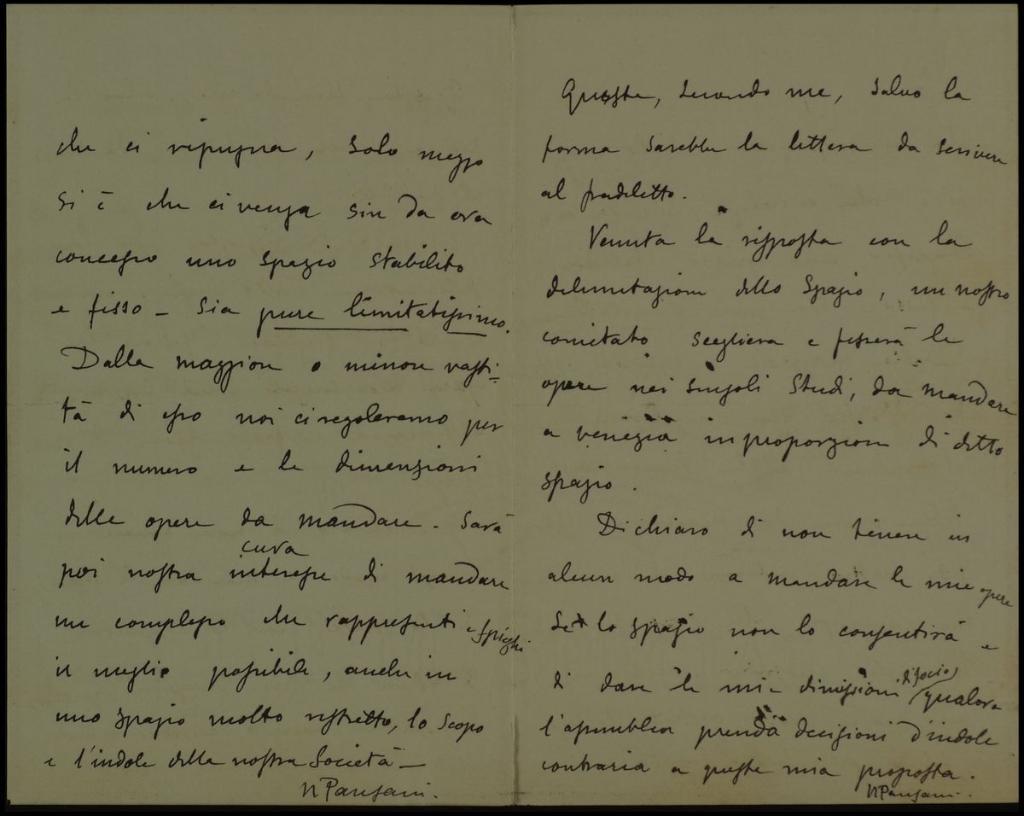 che ci ripugna, solo mezzo
si è che ci venga sin da ora
concesso uno spazio stabilito
e fisso - sia pure limitatissimo.
Dalla maggiore o minore vasti-
tà di esso noi ci regoleremo per
il numero e le dimensioni
delle opere da mandare. Sarà
cura
poi nostra interesse di mandare
un complesso che rappresenti e spieghi
il meglio possibile, anche in
uno spazio molto ristretto, lo scopo
e l'indole della nostra Società -
NParsani.
Questa, secondo me, salvo la
forma sarebbe la lettera da scrivere
al fradeletto.
Venuta la risposta con la
delimitazione dello Spazio, un nostro
comitato sceglierà e fisserà le
opere nei singoli Studi, da mandare
a venezia in proporzione di detto
spazio.
Dichiaro di non tenere in
alcun modo a mandare le mie opere
se lo spazio non lo consentirà e
di dare le mie dimissioni di socio qualora
l'assemblea prenda decisioni d'indole
contraria a queste mia proposta.
NParsani.